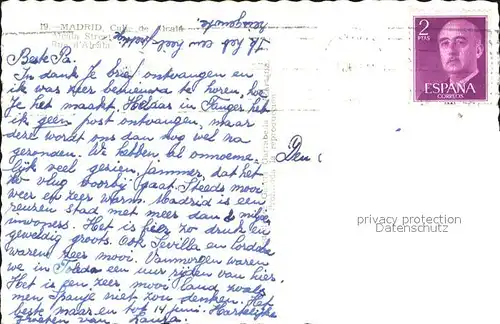 19. - MADRID. Calle de Alcalá
Alcala Street
Rue d'Alcala
2
PTAS
ESPAÑA
CORREOS
Beste Pa.
In dank je brief ontvangen en
ik was zeer benieuwd te horen, hoe
je het maakt. Helaas in Tanger heb
ik geen post ontvangen, maar
dere wordt ons dan nog wel na
gezonden. We hebben al onnoeme
lijk veel gezien, jammer, dat het
zo vlug voorbij gaat. Steeds mooi
weer en zeer warm. Madrid is een
reuzen stad met meer dan 2 miljoen
inwoners. Het is hier zo druk en
geweldig groots. Ook Seville en Cordoba
waren zeer mooi. Vanmorgen waren
we in Toledo een uur rijden van hier.
Het is een zeer mooi land zoals
men Spanje niet zou denken. Het
beste maar en tot 14 juni. Hartelijke
groeten van
Den
privacy protection
Datenschutz